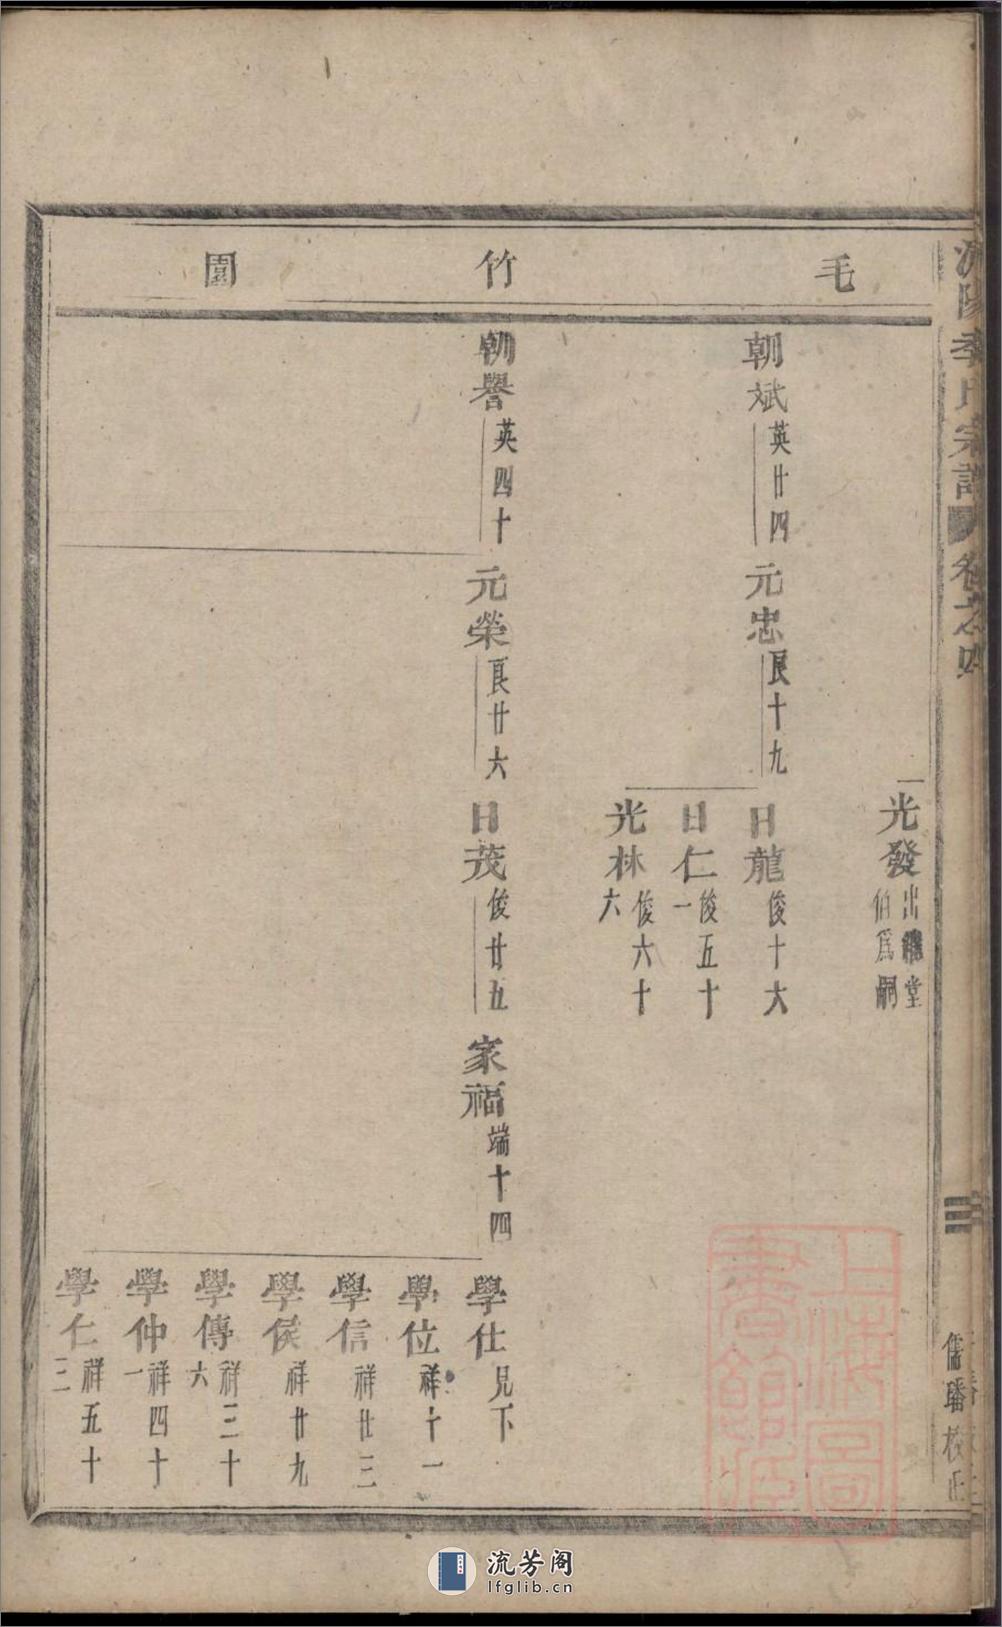 毛竹園
光發 出繼堂伯爲嗣
朝斌 英廿四
元忠 良十九
日龍 俊十六
日仁 俊五十一
光林 俊六十六
朝譽 英四十
元榮 良廿六
日茂 俊廿五
家福 端十四
學仕 見下
學位 祥十一
學信 祥廿三
學侯 祥廿九
學傳 祥三十六
學仲 祥四十一
學仁 祥五十三
季氏宗譜
卷之四
三
儒璠校正
上海圖書館藏
流芳阁
lfglib.cn